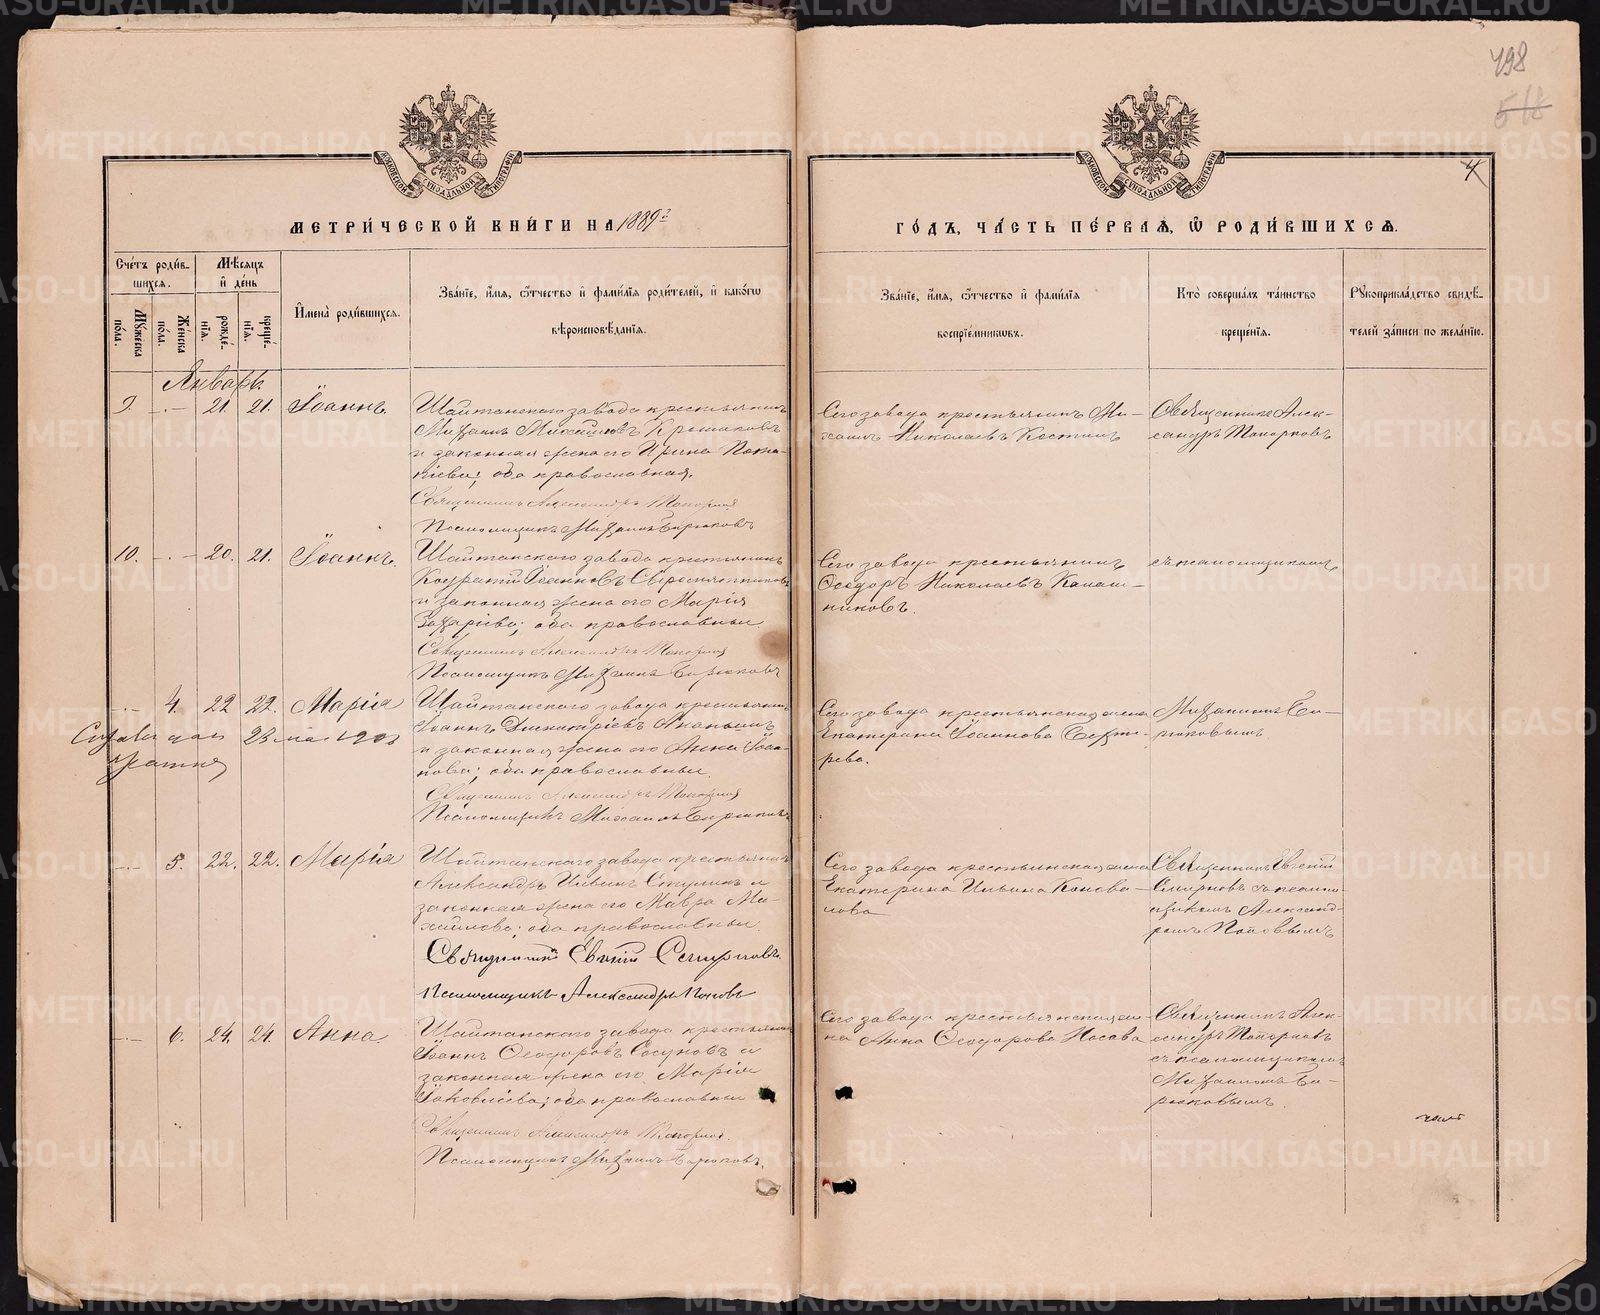 498
518
4
МЕТРИ́ЧЕСКОЙ КНИ́ГИ НА 1889й
ГО́ДЪ, ЧА́СТЬ ПЕ́РВАѦ, Ѡ҆ РОДИ́ВШИХСѦ.
Сче́тъ роди́в-
шихсѧ.
Мѣ́сѧцъ
и҆ де́нь
Мꙋ́жеска
по́ла.
Же́нска
по́ла.
рожде́-
нїѧ.
креще́-
нїѧ.
И҆мена̀ роди́вшихсѧ.
Зва́нїе, и҆́мѧ, ѻ҆́тчество и҆ фами́лїѧ роди́телей, и҆ како́гѡ
вѣроисповѣ́данїѧ.
Зва́нїе, и҆́мѧ, ѻ҆́тчество и҆ фами́лїѧ
воспрїе́мникѡвъ.
Кто̀ соверша́лъ та́инство
креще́нїѧ.
Рꙋкоприкла́дство свидѣ́-
телей за́писи по жела́нїю.
Январь
9. - . - 21. 21. Іоаннъ.
Шайтанскаго завода крестьянинъ
Михаилъ
и законная жена его Ирина Пота-
піева; оба православная.
Священникъ Александръ Топорковъ
Псаломщикъ Михаилъ Бирюковъ
Сего завода крестьянинъ Ми-
хаилъ Николаевъ Костинъ
Священникъ Алек-
сандръ Топорковъ
10. - . - 20. 21. Іоаннъ.
Шайтанскаго завода крестьянинъ
Кодратій Іоанновъ
и законная жена его Марія
Захаріева; оба православныи.
Священникъ Александръ Топорковъ
Псаломщикъ Михаилъ Бирюковъ
Сего завода крестьянинъ
Ѳеодоръ Николаевъ Калаш-
никовъ.
съ псаломщикомъ
4. 22 22. Марія
Шайтанскаго завода крестьянинъ
Іоаннъ Димитріевъ Ананьинъ
и законная жена его Анна Іоан-
нова; оба православныи.
Священникъ Александръ Топорковъ
Псаломщикъ Михаилъ Бирюковъ
23
Сего завода крестьянская жена
Екатерина Іоаннова
рева.
Михаиломъ Би-
рюковымъ
5. 22. 22. Марія
Шайтанскаго завода крестьянинъ
Александръ Ильинъ Стулинъ и
законная жена его Мавра Ми-
хаилова; оба православныи.
Священникъ Евгеній Смирновъ.
Псаломщикъ Александръ Поповъ
Сего завода крестьянская жена
Екатерина Ильина Конова-
лова
Священникъ Евгеній
Смирновъ съ псалом-
щикомъ Александ-
ромъ Поповымъ
6. 24. 24. Анна
Шайтанскаго завода крестьянинъ
Іоаннъ Ѳеодоровъ Сосуновъ и
законная жена его Марія
Іаковлева; оба православныи
Священникъ Александръ Топорковъ.
Псаломщикъ Михаилъ Бирюковъ.
Сего завода крестьянская
Анна Ѳеодорова Носова
Священникъ Алек-
сандръ Топорковъ
съ псаломщикомъ
Михаиломъ Би-
рюковымъ.
METRIKI.GASO-URAL.RU